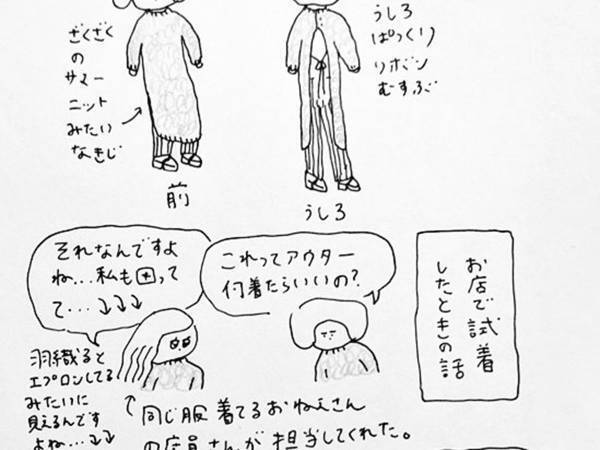 ざくざく
の
サマー
ニット
みたい
なきじ
前
うしろ
ぱっくり
リボン
むすぶ
うしろ
お店で試着
したときの話
これってアウター
何着たらいいの?
それなんですよ
ね...私も困って
て...↓↓↓
羽織ると
エプロンしてる
みたいに
見えるんです
よね...↓↓
同じ服着てるおねえさん
の店員さんが担当してくれた。